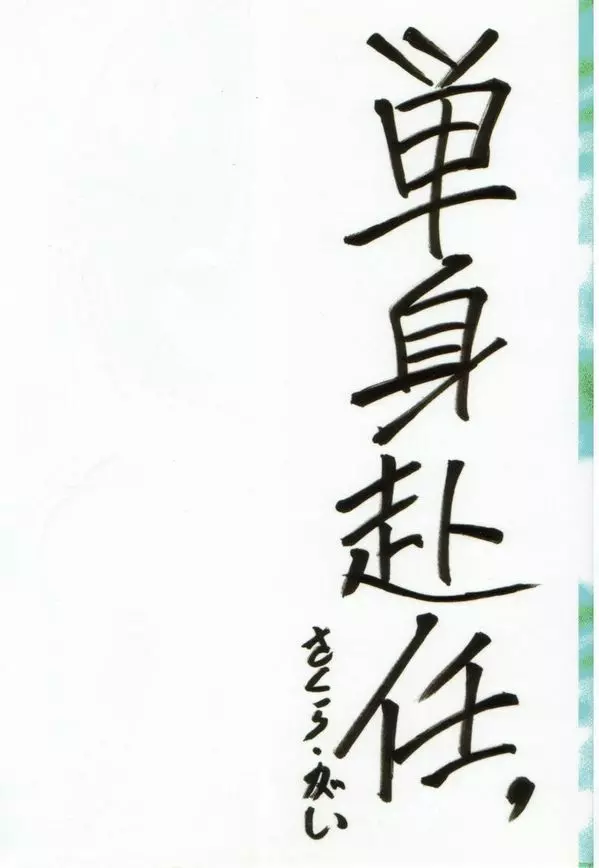 単身赴任,
さくら・がい